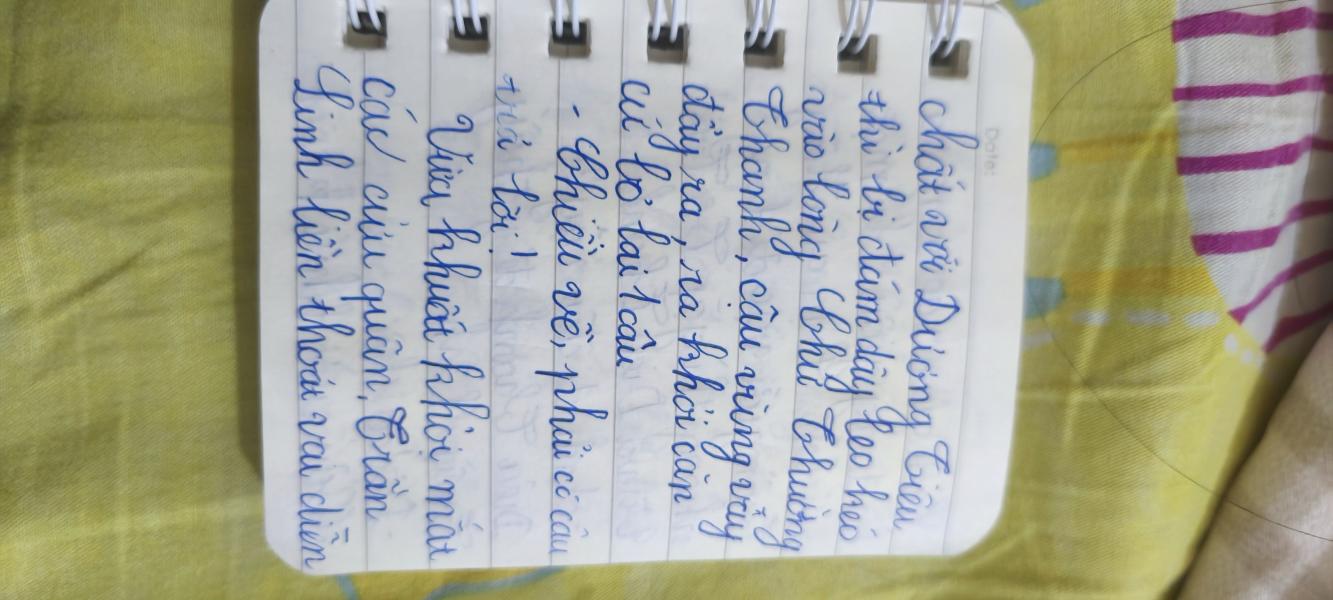 Date:
chất với Dương Tiêu
thì bị đám dây leo kéo
vào lòng Chu Thường
Thanh, cậu vùng vẫy
đẩy ra, ra khỏi căn
cứ bỏ lại 1 câu
- Chiều về, phải có câu
trả lời!
Vừa khuất khỏi mắt
các cựu quân, Trần
Linh liền thoát vai diễn